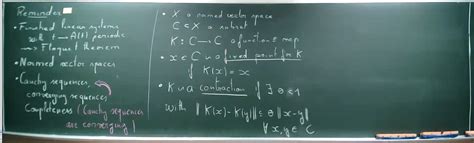 Reminder
• Finished linear systems
with t ⟼ A(t) periodic
⟶ Floquet theorem
• Normed vector spaces
• Cauchy sequences,
converging sequences
Completeness (Cauchy sequences
are converging)
• X a normed vector space
C ⊂ X a subset
K : C → C a function / map
• x ∈ C is a fixed point for K
if K(x) = x
• K is a contraction if ∃ θ < 1
with ‖K(x) - K(y)‖ ≤ θ ‖x - y‖
∀ x, y ∈ C